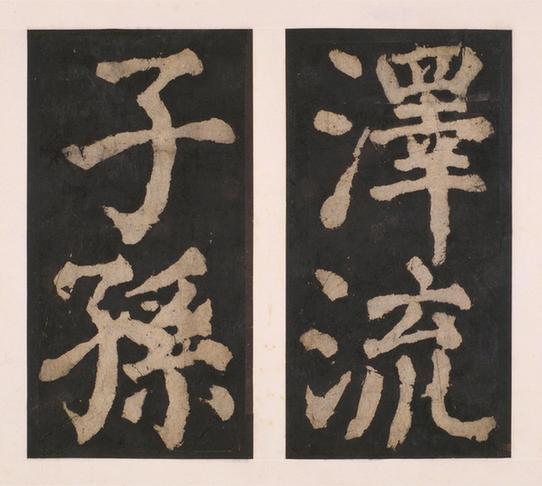 澤流
子孫